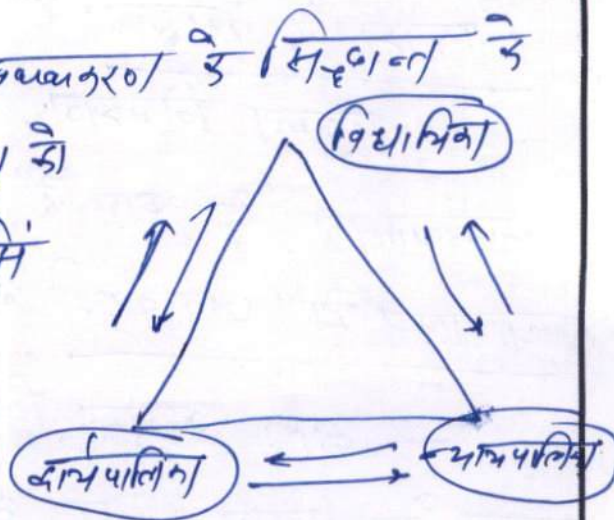 के सिद्धान्त के
को
विधायिका
में
कार्यपालिका न्यायपालिका